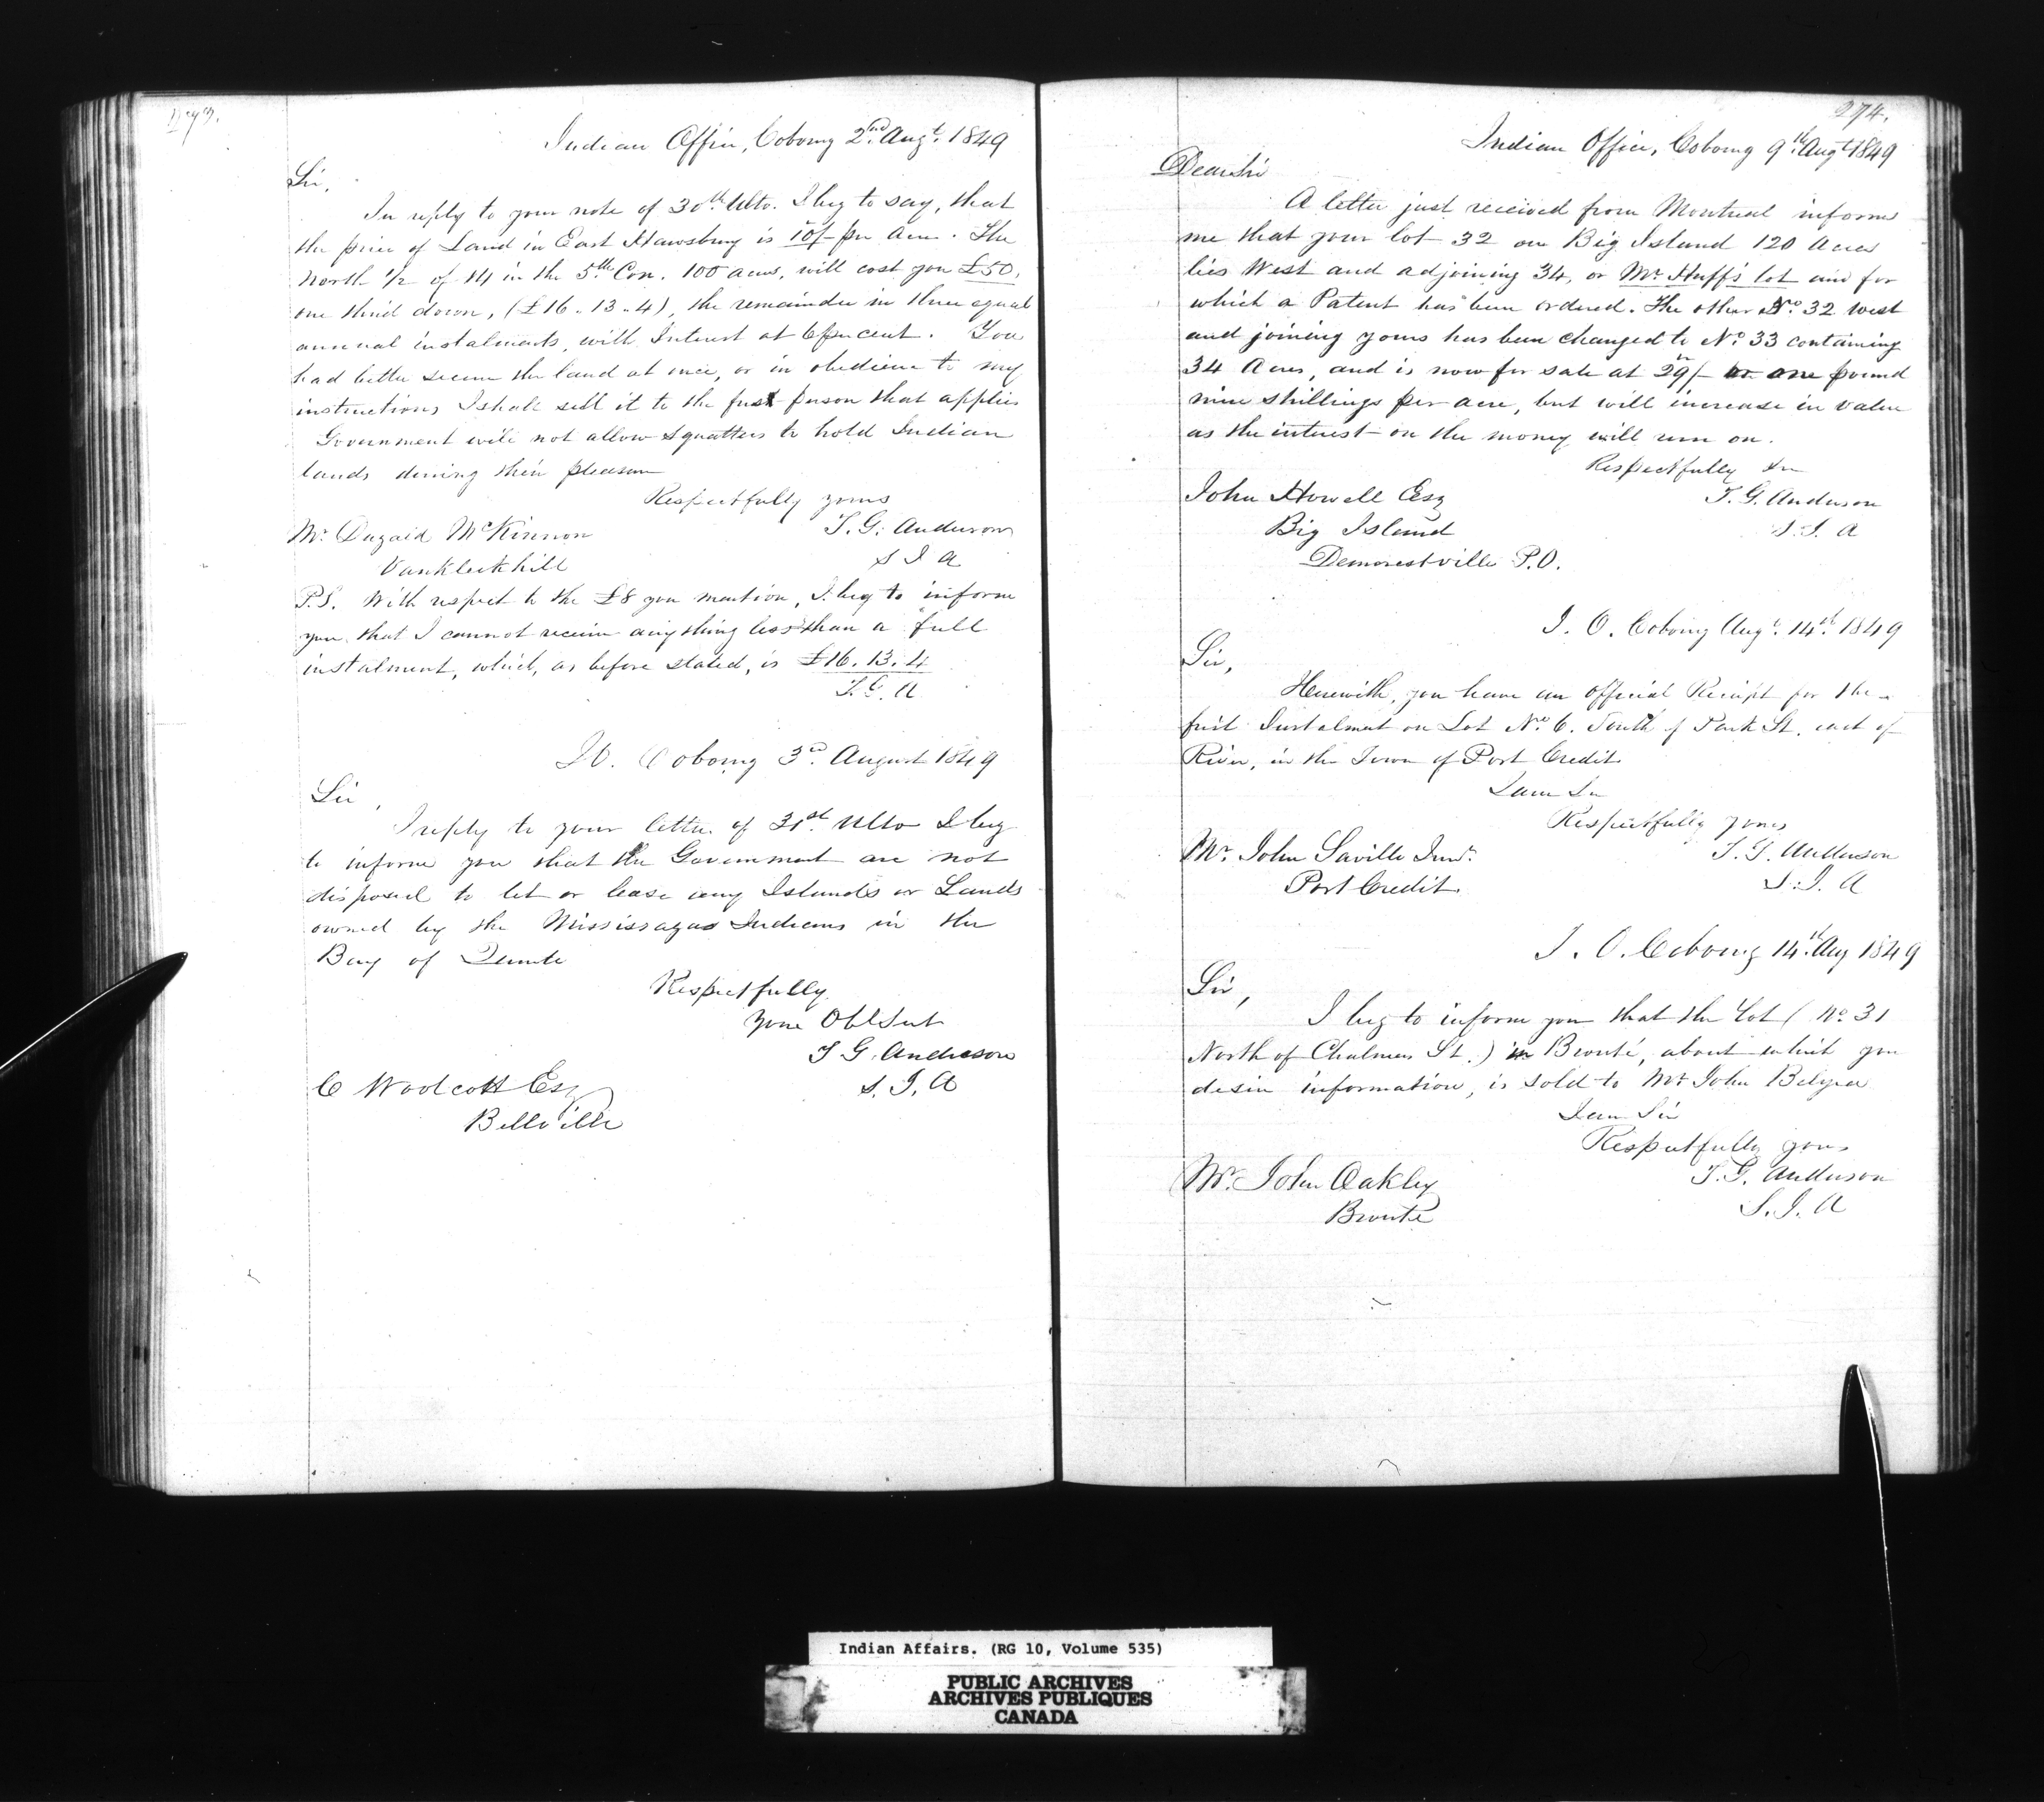 273.
Indian Office, Cobourg 2nd Augt. 1849
Sir,
In reply to your note of 30th Ulto. I beg to say, that
the price of Land in East Hawsbury is 10/- per Acre. The
North 1/2 of 14 in the 5th Con. 100 acres, will cost you £50,
one third down, (£16.13.4), the remainder in three equal
annual instalments, with Interest at 6 per cent. You
had better secure the land at once, or in obedience to my
instructions I shall sell it to the first person that applies
Government will not allow Squatters to hold Indian
lands during their pleasure
Respectfully yours
T. G. Anderson
S I A
Mr. Dugald McKinnon
Vankleekhill
P.S. With respect to the £8 you mention, I beg to inform
you that I cannot receive anything less than a full
instalment, which, as before stated, is £16.13.4
T. G. A
I O. Cobourg 3rd August 1849
Sir,
I reply to your letter of 31st Ulto I beg
to inform you that the Government are not
disposed to let or lease any Islands or Lands
owned by the Mississagas Indians in the
Bay of Quinte
Respectfully
your Obt Sert
T G. Anderson
S. I. A
C Woolcott Esq
Bellville
274.
Indian Office, Cobourg 9th Augt 1849
Dear Sir
A letter just received from Montreal informs
me that your lot 32 on Big Island 120 Acres
lies West and adjoining 34, or Mr. Huff's lot and for
which a Patent has been ordered. The other No. 32 west
and joining yours has been changed to No. 33 containing
34 Acres, and is now for sale at 29/- one pound
nine shillings per acre, but will increase in value
as the interest on the money will run on.
Respectfully Sir
T. G. Anderson
S. I. A
John Howell Esq
Big Island
Demorestville P.O.
I. O. Cobourg Augt. 14th 1849
Sir,
Herewith, you have an official Receipt for the
first Instalment on Lot No. 6. South of Park St. east of
River, in the Town of Port Credit
I am Sir
Respectfully yours
T. G. Anderson
S. I. A
Mr. John Saville Junr.
Port Credit
I. O. Cobourg 14th Aug 1849
Sir,
I beg to inform you that the Lot (No. 31
North of Chalmers St.) in Bronté, about which you
desire information, is sold to Mr John Belyea
I am Sir
Respectfully yours
T. G. Anderson
S. I. A
Mr. John Oakley
Bronte
Indian Affairs. (RG 10, Volume 535)
PUBLIC ARCHIVES
ARCHIVES PUBLIQUES
CANADA